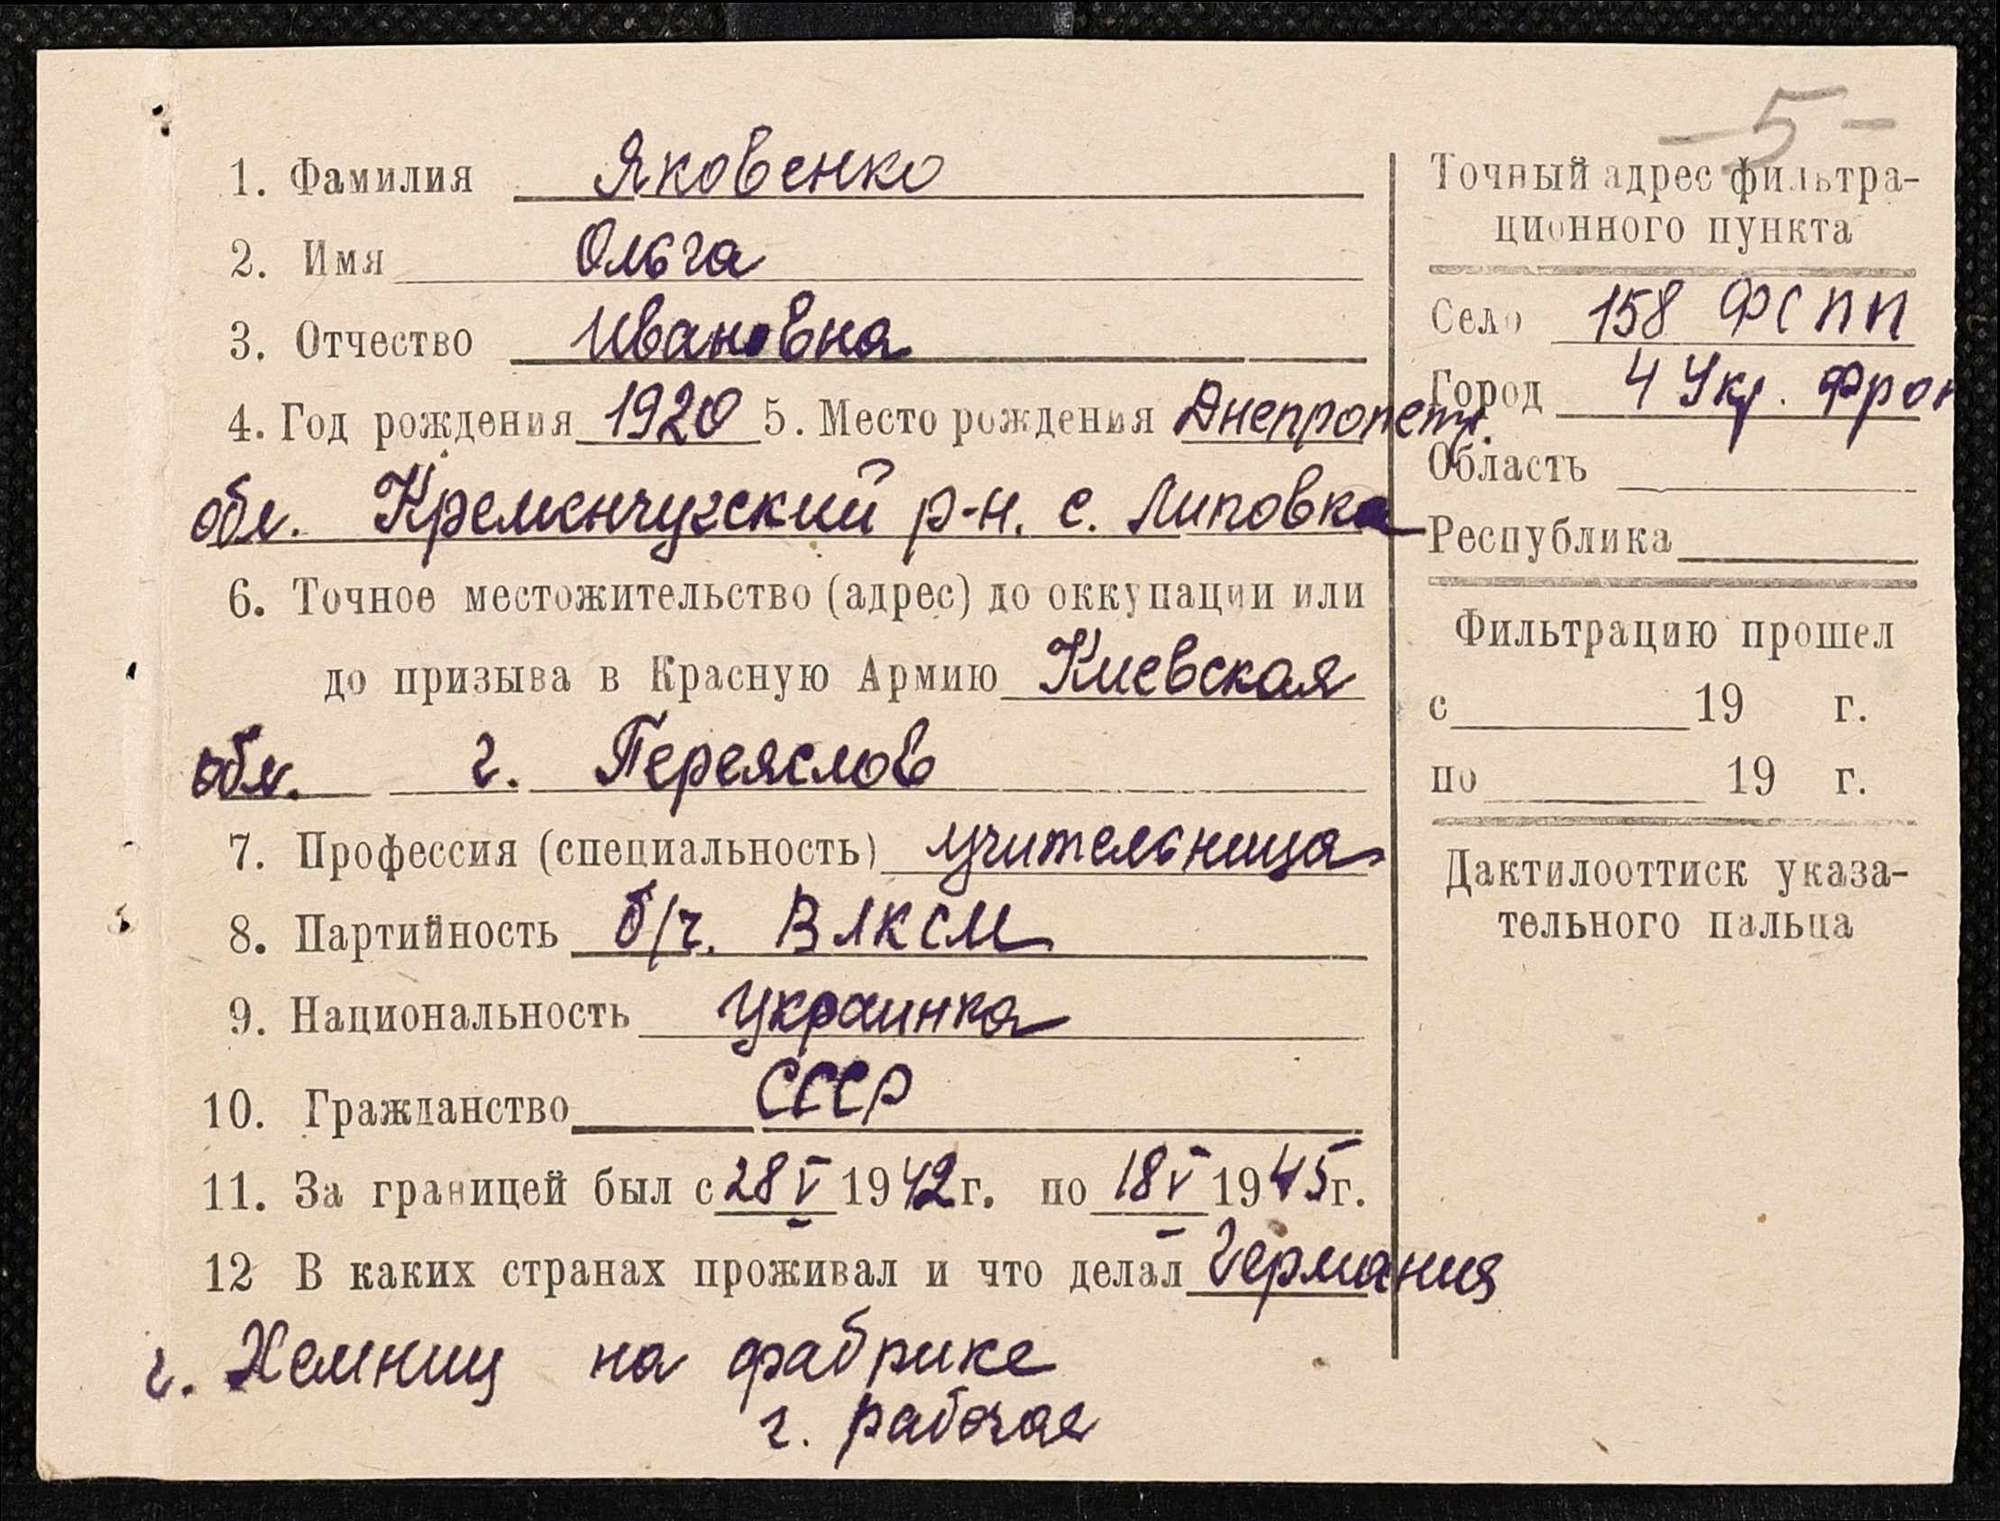 1. Фамилия Яковенко
2. Имя Ольга
3. Отчество Ивановна
4. Год рождения 1920 5. Место рождения Днепропетр.
обл. Кременчугский р-н. с. Липовка
6. Точное местожительство (адрес) до оккупации или
до призыва в Красную Армию Киевская
обл. г. Переяслов
7. Профессия (специальность) учительница
8. Партийность б/ч. ВЛКСМ
9. Национальность украинка
10. Гражданство СССР
11. За границей был с 28 V 1942 г. по 18 V 1945 г.
12 В каких странах проживал и что делал Германия
г. Хемниц на фабрике
г. рабочая
-5-
Точный адрес фильтра-
ционного пункта
Село 158 ФСПП
Город 4 Укр. Фрон
Область
Республика
Фильтрацию прошел
с 19 г.
по 19 г.
Дактилооттиск указа-
тельного пальца